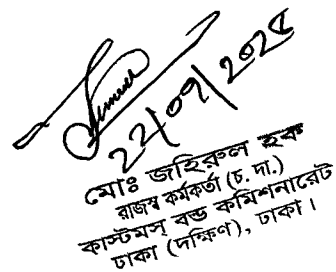 ২২/০৭/২০২৫
মোঃ জহিরুল হক
রাজস্ব কর্মকর্তা (চ. দা.)
কাস্টমস্ বন্ড কমিশনারেট
ঢাকা (দক্ষিণ), ঢাকা।